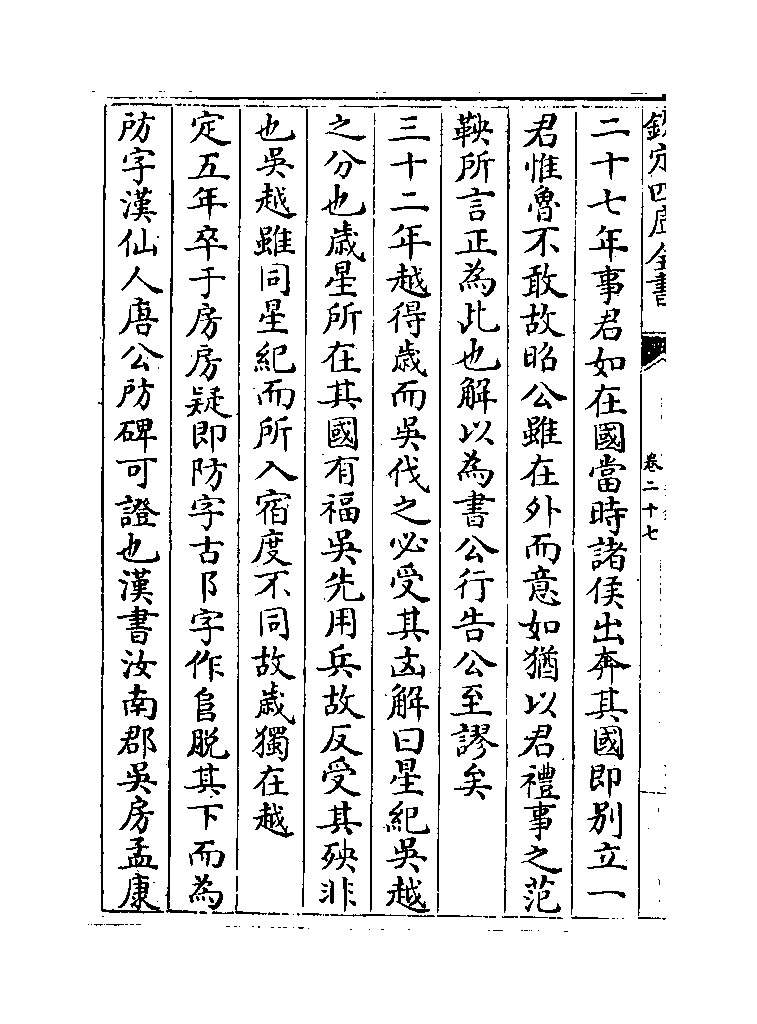 欽定四庫全書
卷二十七
二十七年事君如在國當時諸侯出奔其國即别立一
君惟魯不敢故昭公雖在外而意如猶以君禮事之范
鞅所言正為此也解以為書公行告公至謬矣
三十二年越得歳而吳伐之必受其凶解曰星紀吳越
之分也歳星所在其國有福吳先用兵故反受其殃非
也吳越雖同星紀而所入宿度不同故歳獨在越
定五年卒于房房疑即防字古阝字作𨸏脱其下而為
防字漢仙人唐公防碑可證也漢書汝南郡吳房孟康